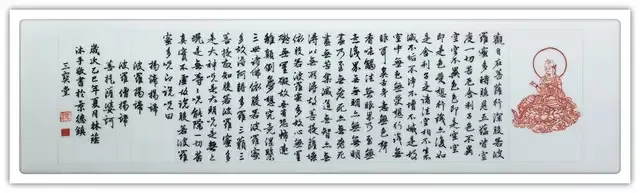 觀自在菩薩行深般若波
羅蜜多時照見五蘊皆空
度一切苦厄舍利子色不異
空空不異色色即是空空
即是色受想行識亦復如
是舍利子是諸法空相不生不
滅不垢不淨不增不減是故
空中無色無受想行識無
眼耳鼻舌身意無色聲
香味觸法無眼界乃至無
意識界無無明亦無無明
盡乃至無老死亦無老死
盡無苦集滅道無智亦無
得以無所得故菩提薩埵
依般若波羅蜜多故心無罣
礙無罣礙故無有恐怖遠
離顛倒夢想究竟涅槃
三世諸佛依般若波羅蜜
多故得阿耨多羅三藐三
菩提故知般若波羅蜜多
是大神咒是大明咒是無上
咒是無等等咒能除一切苦
真實不虛故說般若波羅
蜜多咒即說咒曰
揭諦揭諦
波羅揭諦
波羅僧揭諦
菩提薩婆訶
歲次乙巳年夏月林蔭
沐手敬書於景德鎮
三寶堂